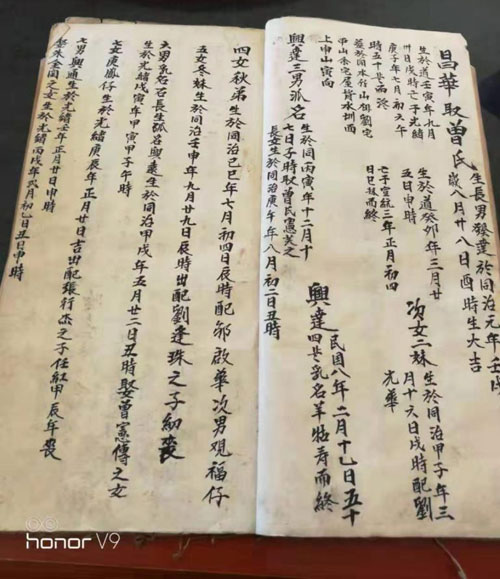 昌華取曾氏
生於道壬寅年九月
卅日戌時亡于光緒
庚子年七月初六午
時五十𠦜而終
生於道癸卯年三月廿
五日申時
亡于宣統三年正月初四
日巳後而終
生長男發達於同治元年壬戌
歲八月廿八日酉時生大吉
次女二妹生於同治甲子年三
月十六日戌時配劉
光華
興達三男派名
生於同丙寅年十二月十
七日子時取曾氏憲芙之
長女生於同治庚午年八月初二日丑時
興達民國八年二月十七日五十
四𠦜乳名羊牯寿而終
四女秋弟生於同治己巳年七月初四日辰時配邹啟華次男观福仔
五女冬妹生於同治壬申年九月廿九日辰時出配劉逢珠之子
六男乳名石長生派名興遠生於同治甲戌年五月廿二日丑時娶曾憲傳之女
生於光緒戊寅年甲寅甲子午時
七女庚鳳仔生於光緒庚辰年正月廿日吉出配張行
之子任紅甲辰年喪
七男興通生於光緒壬午正月廿日申時
之女生於光緒丙戌年
日丑日申時
honor V9